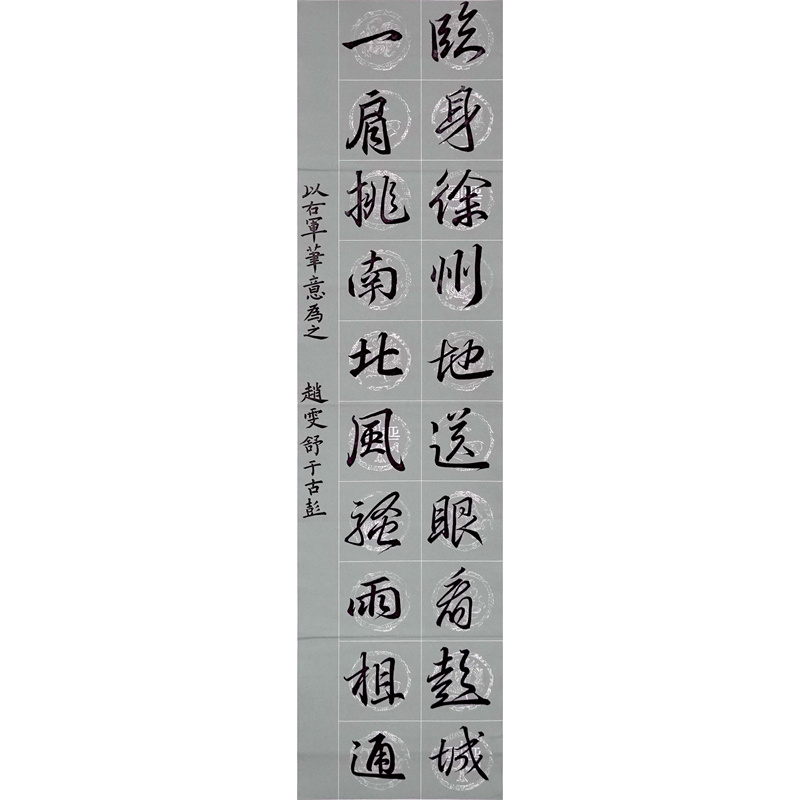 臨身徐州地送眼看彭城
一肩挑南北風騷雨相通
以右軍筆意為之 趙雯舒于古彭